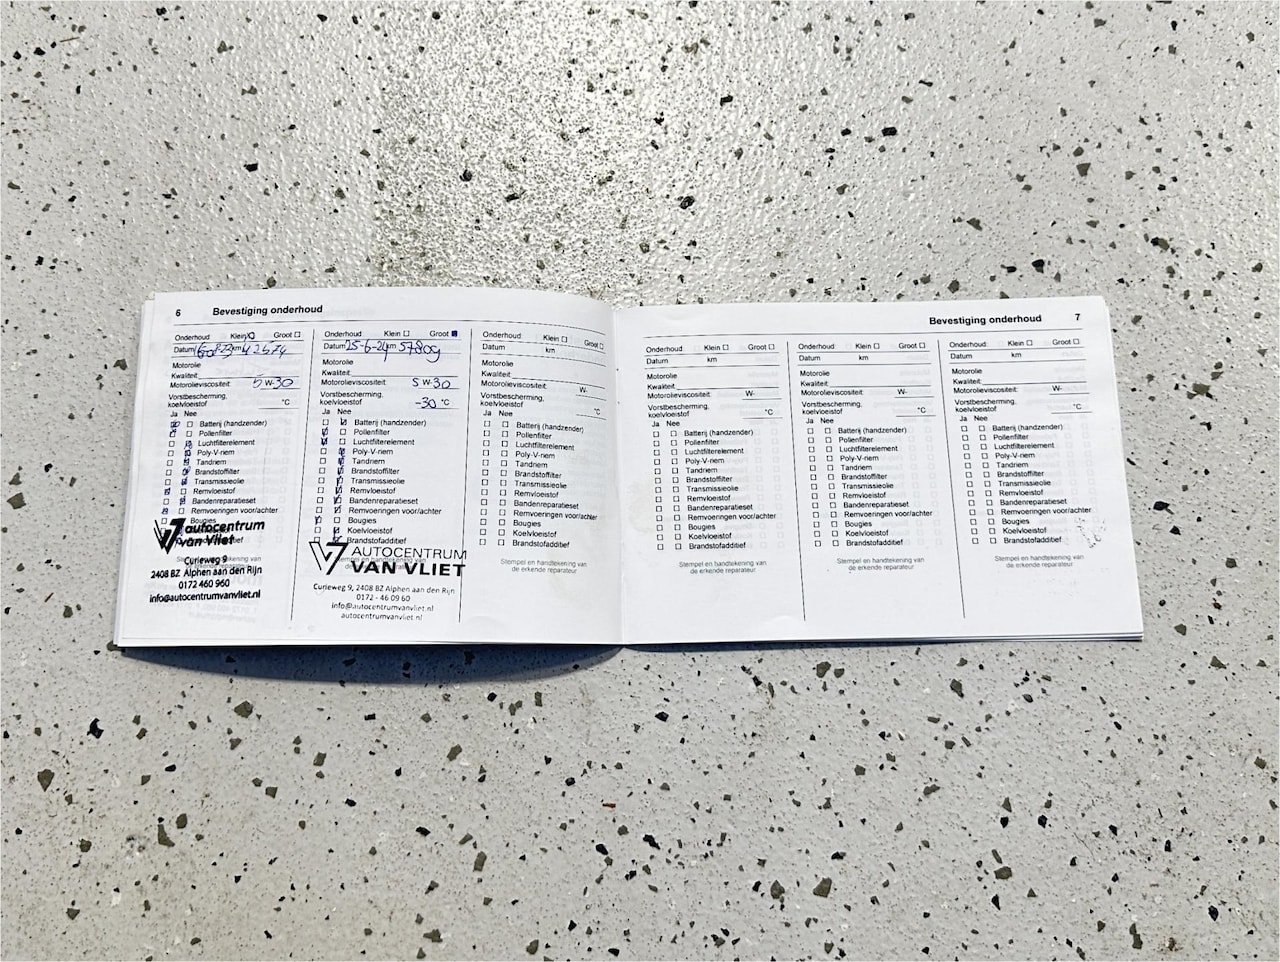 6 Bevestiging onderhoud
Onderhoud Klein Groot
Datum km 42574
Motorolie
Kwaliteit:
Motorolieviscositeit: 5 W-30
Vorstbescherming,
koelvloeistof °C
Ja Nee
Batterij (handzender)
Pollenfilter
Luchtfilterelement
Poly-V-riem
Tandriem
Brandstoffilter
Transmissieolie
Remvloeistof
Bandenreparatieset
Remvoeringen voor/achter
Bougies
autocentrum
van Vliet
Stempel en handtekening van
Curieweg 9
2408 BZ Alphen aan den Rijn
0172 460 960
info@autocentrumvanvliet.nl
Onderhoud Klein Groot
Datum 25-6-24 km 57809
Motorolie
Kwaliteit:
Motorolieviscositeit: 5 W-30
Vorstbescherming,
koelvloeistof -30 °C
Ja Nee
Batterij (handzender)
Pollenfilter
Luchtfilterelement
Poly-V-riem
Tandriem
Brandstoffilter
Transmissieolie
Remvloeistof
Bandenreparatieset
Remvoeringen voor/achter
Bougies
Koelvloeistof
Brandstofadditief
AUTOCENTRUM
VAN VLIET
Curieweg 9, 2408 BZ Alphen aan den Rijn
0172 - 46 09 60
info@autocentrumvanvliet.nl
autocentrumvanvliet.nl
Onderhoud Klein Groot
Datum km
Motorolie
Kwaliteit:
Motorolieviscositeit: W-
Vorstbescherming,
koelvloeistof °C
Ja Nee
Batterij (handzender)
Pollenfilter
Luchtfilterelement
Poly-V-riem
Tandriem
Brandstoffilter
Transmissieolie
Remvloeistof
Bandenreparatieset
Remvoeringen voor/achter
Bougies
Koelvloeistof
Brandstofadditief
Stempel en handtekening van
de erkende reparateur
Bevestiging onderhoud 7
Onderhoud Klein Groot
Datum km
Motorolie
Kwaliteit:
Motorolieviscositeit: W-
Vorstbescherming,
koelvloeistof °C
Ja Nee
Batterij (handzender)
Pollenfilter
Luchtfilterelement
Poly-V-riem
Tandriem
Brandstoffilter
Transmissieolie
Remvloeistof
Bandenreparatieset
Remvoeringen voor/achter
Bougies
Koelvloeistof
Brandstofadditief
Stempel en handtekening van
de erkende reparateur
Onderhoud Klein Groot
Datum km
Motorolie
Kwaliteit:
Motorolieviscositeit: W-
Vorstbescherming,
koelvloeistof °C
Ja Nee
Batterij (handzender)
Pollenfilter
Luchtfilterelement
Poly-V-riem
Tandriem
Brandstoffilter
Transmissieolie
Remvloeistof
Bandenreparatieset
Remvoeringen voor/achter
Bougies
Koelvloeistof
Brandstofadditief
Stempel en handtekening van
de erkende reparateur
Onderhoud Klein Groot
Datum km
Motorolie
Kwaliteit:
Motorolieviscositeit: W-
Vorstbescherming,
koelvloeistof °C
Ja Nee
Batterij (handzender)
Pollenfilter
Luchtfilterelement
Poly-V-riem
Tandriem
Brandstoffilter
Transmissieolie
Remvloeistof
Bandenreparatieset
Remvoeringen voor/achter
Bougies
Koelvloeistof
Brandstofadditief
Stempel en handtekening van
de erkende reparateur